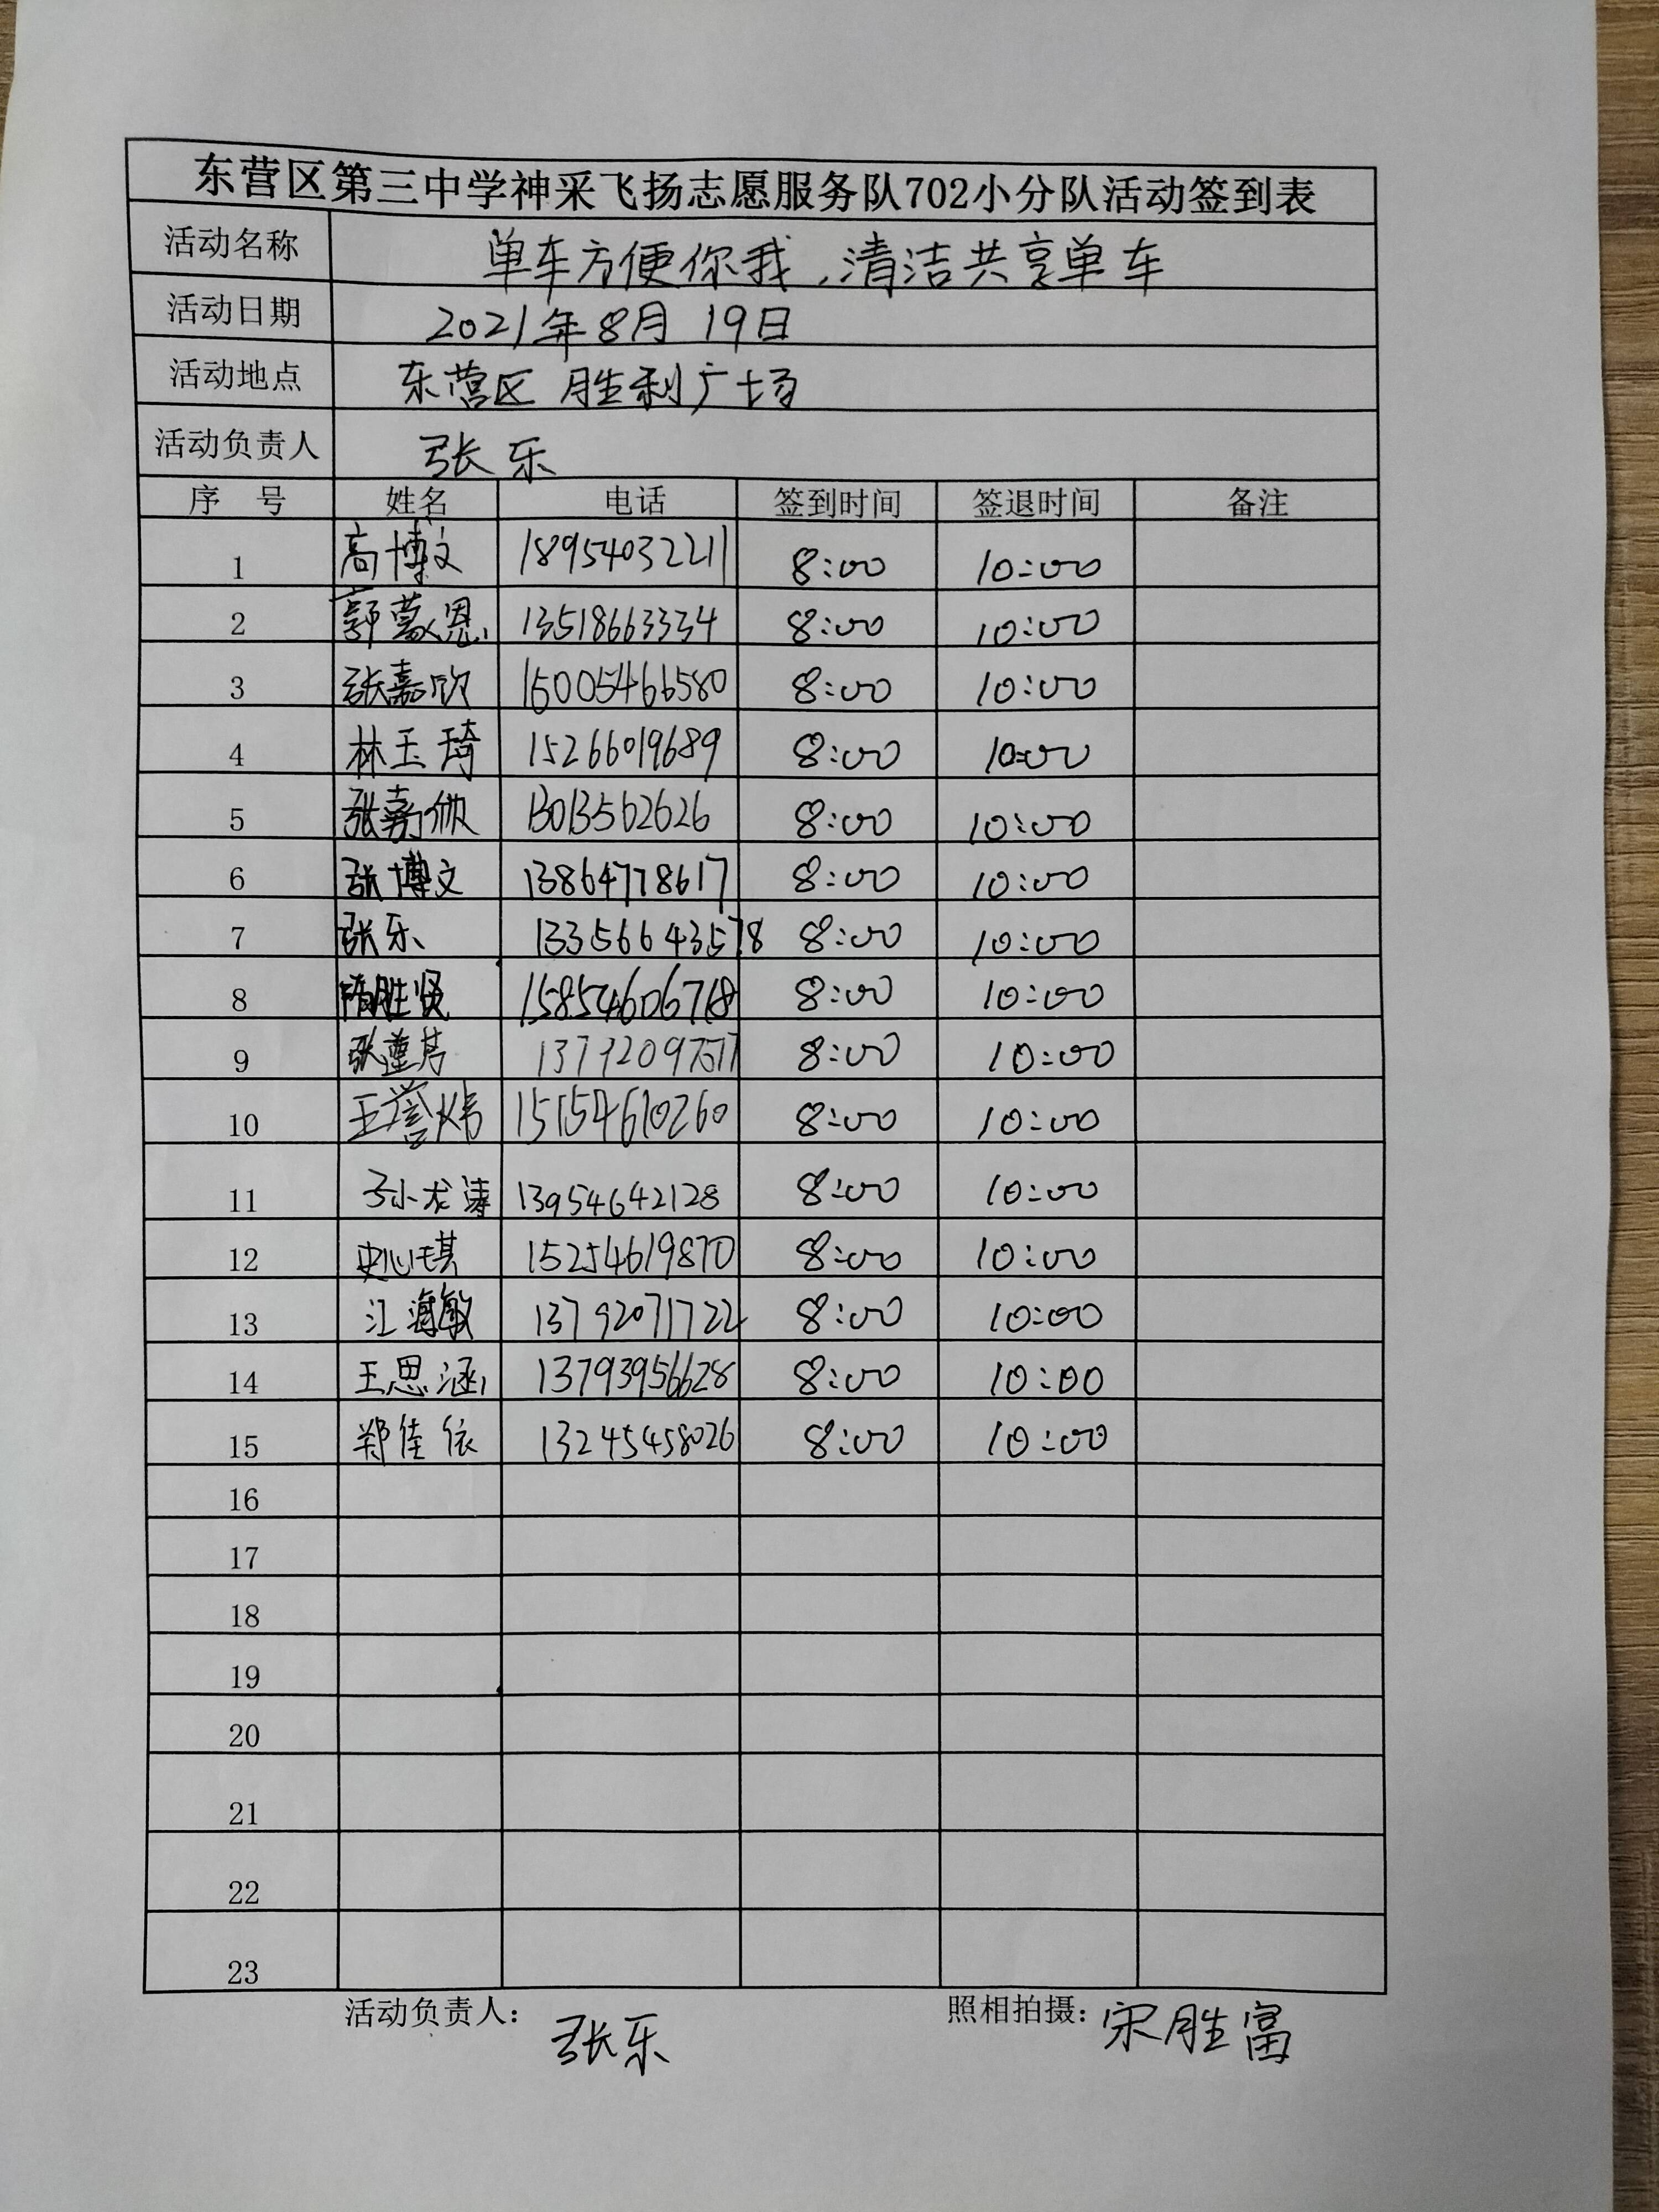 东营区第三中学神采飞扬志愿服务队702小分队活动签到表
活动名称 单车方便你我,清洁共享单车
活动日期 2021年8月19日
活动地点 东营区 胜利广场
活动负责人 张乐
序 号 姓名 电话 签到时间 签退时间 备注
1 高博文 18954032211 8:00 10:00
2 郭蒙恩 13518663334 8:00 10:00
3 张嘉欣 15005466580 8:00 10:00
4 林玉琦 15266019689 8:00 10:00
5 张嘉 8:00 10:00
6 张博文 13864778617 8:00 10:00
7 张乐 13356643578 8:00 10:00
8 隋胜贤 15854606718 8:00 10:00
9 张董芮 8:00 10:00
10 王誉炜 15154610260 8:00 10:00
11 孙龙涛 13954642128 8:00 10:00
12 史心琪 15254619870 8:00 10:00
13 江海敏 13792071722 8:00 10:00
14 王思涵 13793956628 8:00 10:00
15 郑佳依 13245458026 8:00 10:00
16
17
18
19
20
21
22
23
活动负责人: 张乐 照相拍摄: 宋胜富